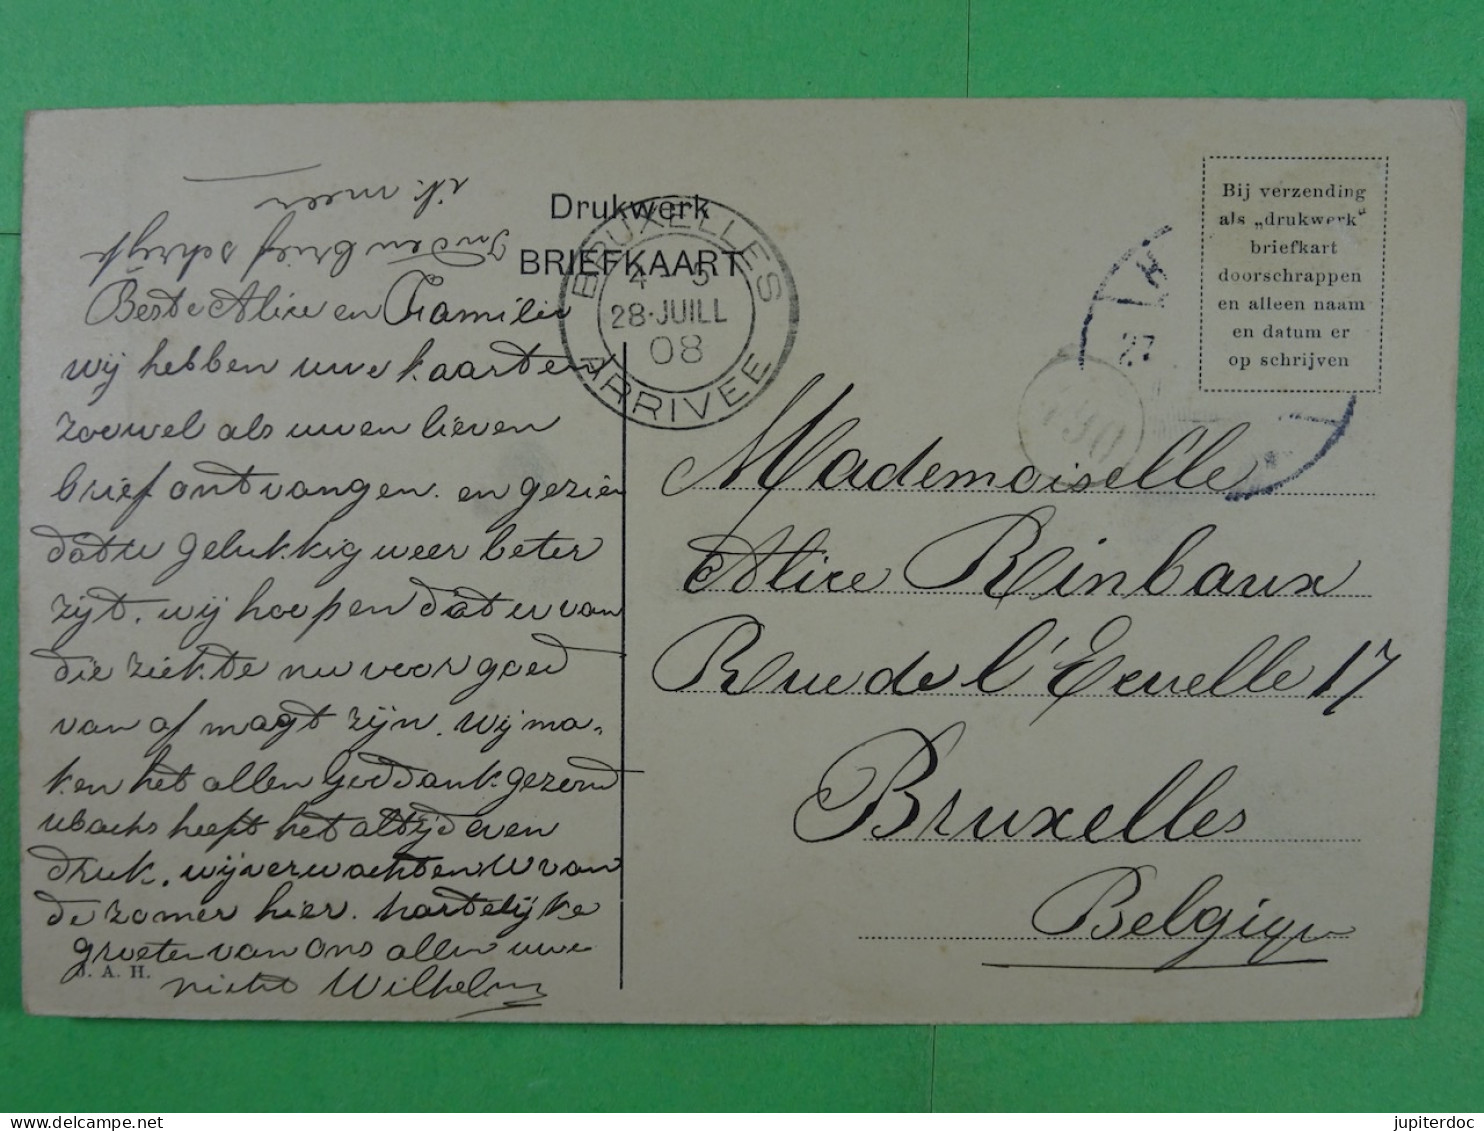 Drukwerk
BRIEFKAART
BRUXELLES
4 - 5
28·JUILL
08
ARRIVEE
Bij verzending
als „drukwerk"
briefkart
doorschrappen
en alleen naam
en datum er
op schrijven
27
490
Beste Alice en Familie
wij hebben uwe kaarten
zoowel als uwen lieven
brief ontvangen. en gezien
dat u gelukkig weer beter
zijt. wij hoopen dat u van
die ziekte nu voor goed
van af magt zijn. Wij ma-
ken het allen God dank gezond
heeft het altijd even
druk. wij verwachten U van
de zomer hier. hartelijke
groeten van ons allen uwe
nicht Wilhelm
In den brief schrijf
ik meer
J. A. H.
Mademoiselle
Alice Rinbaux
Rue de l'Ecuelle 17
Bruxelles
Belgique
jupiterdoc
www.delcampe.net